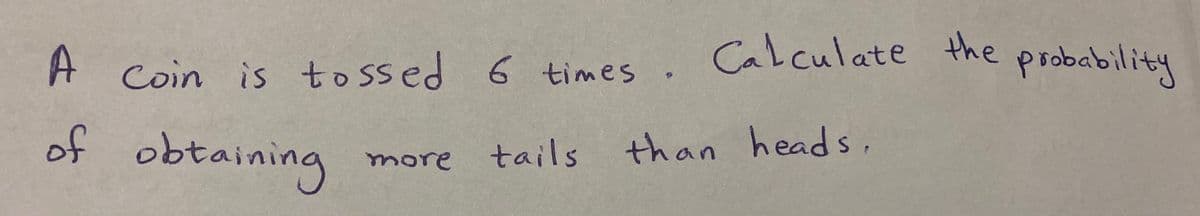 A coin is tossed 6 times. Calculate the probability
of obtaining more tails than heads.